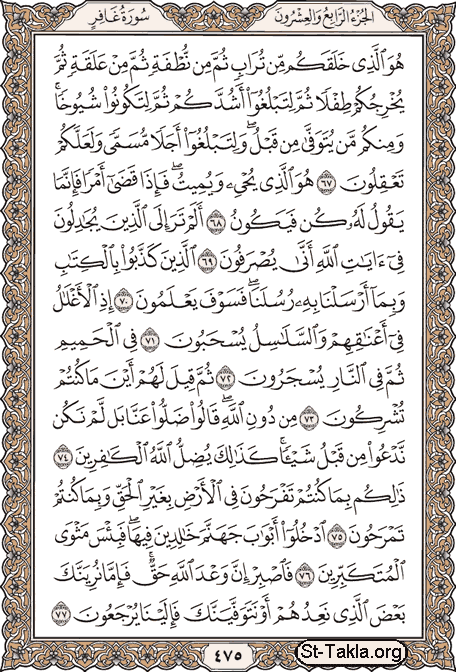 الجزء الرابع والعشرون
سورة غافر
هُوَ ٱلَّذِى خَلَقَكُم مِّن تُرَابٍ ثُمَّ مِن نُّطْفَةٍ ثُمَّ مِنْ عَلَقَةٍ ثُمَّ
يُخْرِجُكُمْ طِفْلًا ثُمَّ لِتَبْلُغُوٓا۟ أَشُدَّكُمْ ثُمَّ لِتَكُونُوا۟ شُيُوخًا ۚ
وَمِنكُم مَّن يُتَوَفَّىٰ مِن قَبْلُ ۖ وَلِتَبْلُغُوٓا۟ أَجَلًا مُّسَمًّى وَلَعَلَّكُمْ
تَعْقِلُونَ ٦٧ هُوَ ٱلَّذِى يُحْىِۦ وَيُمِيتُ ۖ فَإِذَا قَضَىٰٓ أَمْرًا فَإِنَّمَا
يَقُولُ لَهُۥ كُن فَيَكُونُ ٦٨ أَلَمْ تَرَ إِلَى ٱلَّذِينَ يُجَٰدِلُونَ
فِىٓ ءَايَٰتِ ٱللَّهِ أَنَّىٰ يُصْرَفُونَ ٦٩ ٱلَّذِينَ كَذَّبُوا۟ بِٱلْكِتَٰبِ
وَبِمَآ أَرْسَلْنَا بِهِۦ رُسُلَنَا ۖ فَسَوْفَ يَعْلَمُونَ ٧٠ إِذِ ٱلْأَغْلَٰلُ
فِىٓ أَعْنَٰقِهِمْ وَٱلسَّلَٰسِلُ يُسْحَبُونَ ٧١ فِى ٱلْحَمِيمِ
ثُمَّ فِى ٱلنَّارِ يُسْجَرُونَ ٧٢ ثُمَّ قِيلَ لَهُمْ أَيْنَ مَا كُنتُمْ
تُشْرِكُونَ ٧٣ مِن دُونِ ٱللَّهِ ۖ قَالُوا۟ ضَلُّوا۟ عَنَّا بَل لَّمْ نَكُن
نَّدْعُوا۟ مِن قَبْلُ شَيْـًٔا ۚ كَذَٰلِكَ يُضِلُّ ٱللَّهُ ٱلْكَٰفِرِينَ ٧٤
ذَٰلِكُم بِمَا كُنتُمْ تَفْرَحُونَ فِى ٱلْأَرْضِ بِغَيْرِ ٱلْحَقِّ وَبِمَا كُنتُمْ
تَمْرَحُونَ ٧٥ ٱدْخُلُوٓا۟ أَبْوَٰبَ جَهَنَّمَ خَٰلِدِينَ فِيهَا ۖ فَبِئْسَ مَثْوَى
ٱلْمُتَكَبِّرِينَ ٧٦ فَٱصْبِرْ إِنَّ وَعْدَ ٱللَّهِ حَقٌّ ۚ فَإِمَّا نُرِيَنَّكَ
بَعْضَ ٱلَّذِى نَعِدُهُمْ أَوْ نَتَوَفَّيَنَّكَ فَإِلَيْنَا يُرْجَعُونَ ٧٧
٤٧٥
St-Takla.org